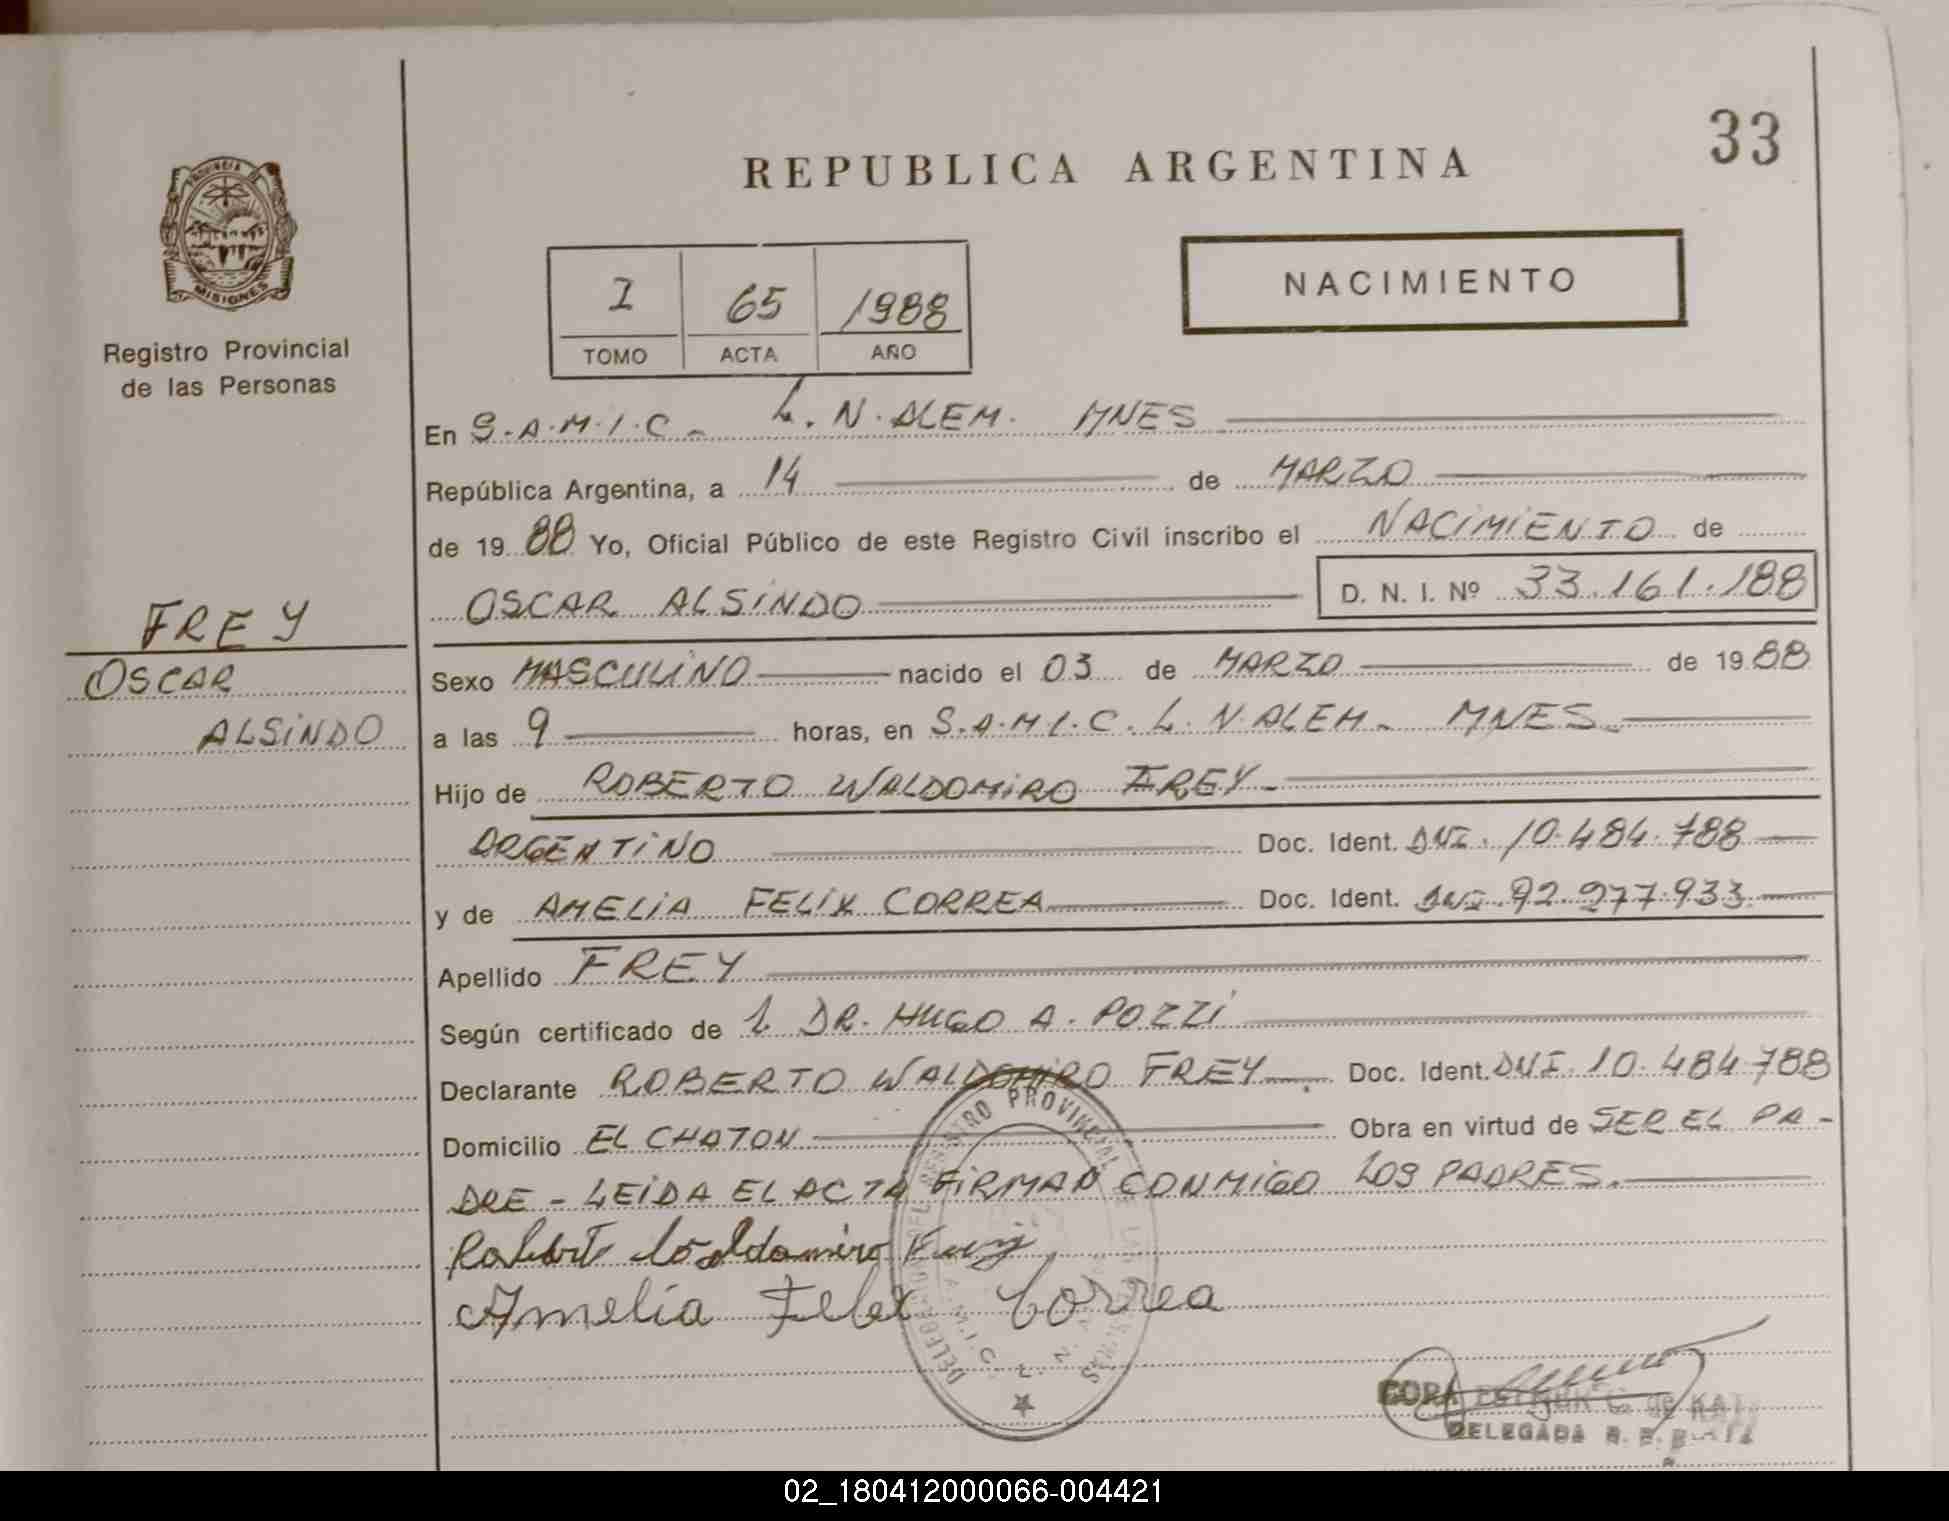 REPUBLICA ARGENTINA
33
PROVINCIA DE
MISIONES
Registro Provincial
de las Personas
NACIMIENTO
I 65 1988
TOMO ACTA AÑO
En S.A.M.I.C. L. N. ALEM. MNES
República Argentina, a 14 de MARZO
de 1988 Yo, Oficial Público de este Registro Civil inscribo el NACIMIENTO de
OSCAR ALSINDO D. N. I. Nº 33.161.188
FREY
OSCAR
ALSINDO
Sexo MASCULINO nacido el 03 de MARZO de 1988
a las 9 horas, en S.A.M.I.C. L. N. ALEM. MNES.
Hijo de ROBERTO WALDOMIRO FREY
ARGENTINO Doc. Ident. DNI. 10.484.788
y de AMELIA FELIX CORREA Doc. Ident. DNI. 92.277.933.
Apellido FREY
Según certificado de DR. HUGO A. POZZI
Declarante ROBERTO WALDOMIRO FREY. Doc. Ident. DNI. 10.484.788
Domicilio EL CHATON Obra en virtud de SER EL PA-
DRE - LEIDA EL ACTA FIRMAN CONMIGO LOS PADRES.
Roberto Waldomiro Frey
Amelia Felex Correa
PROVINCIAL DE LAS
S.A.M.I.C. L. N.
DELEGADA
02_180412000066-004421